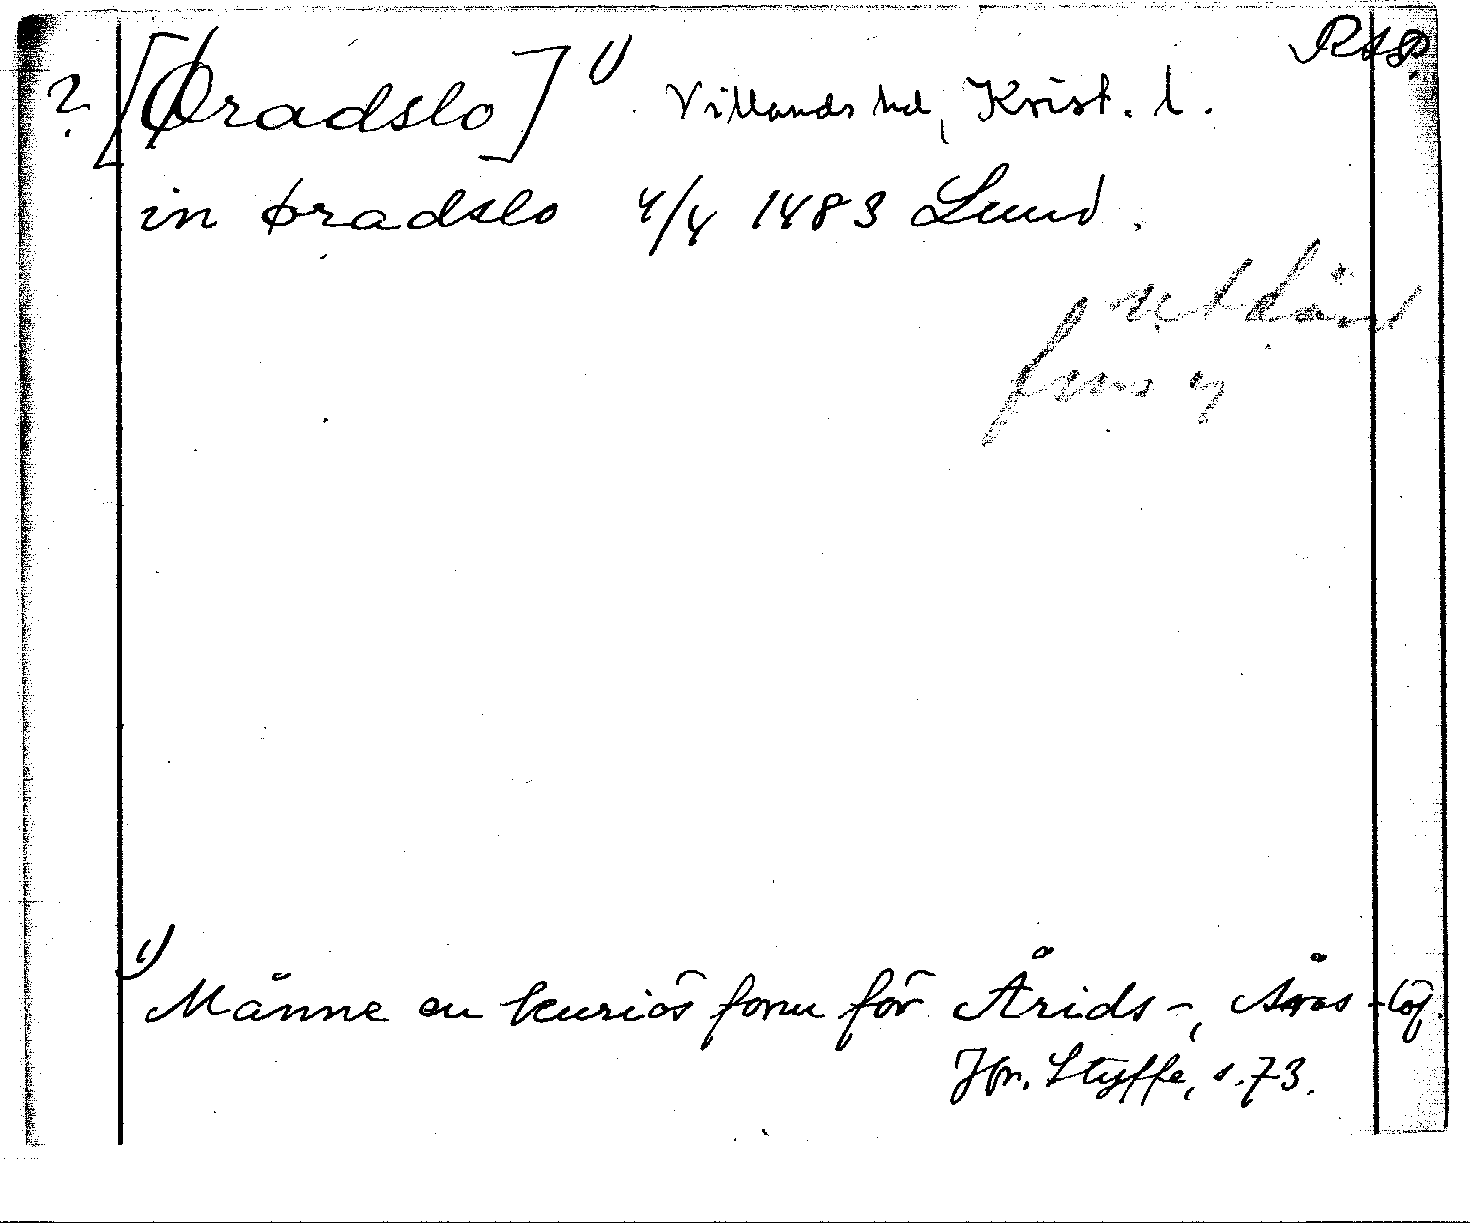 RAP
? [Øradslo] 1) Villands hd, Krist. l.
in øradslo 4/4 1483 Lund.
utlån
finns ej
1) Månne en kuriös form för Årids-, Åras-löf
Jfr. Styffe, s. 73.